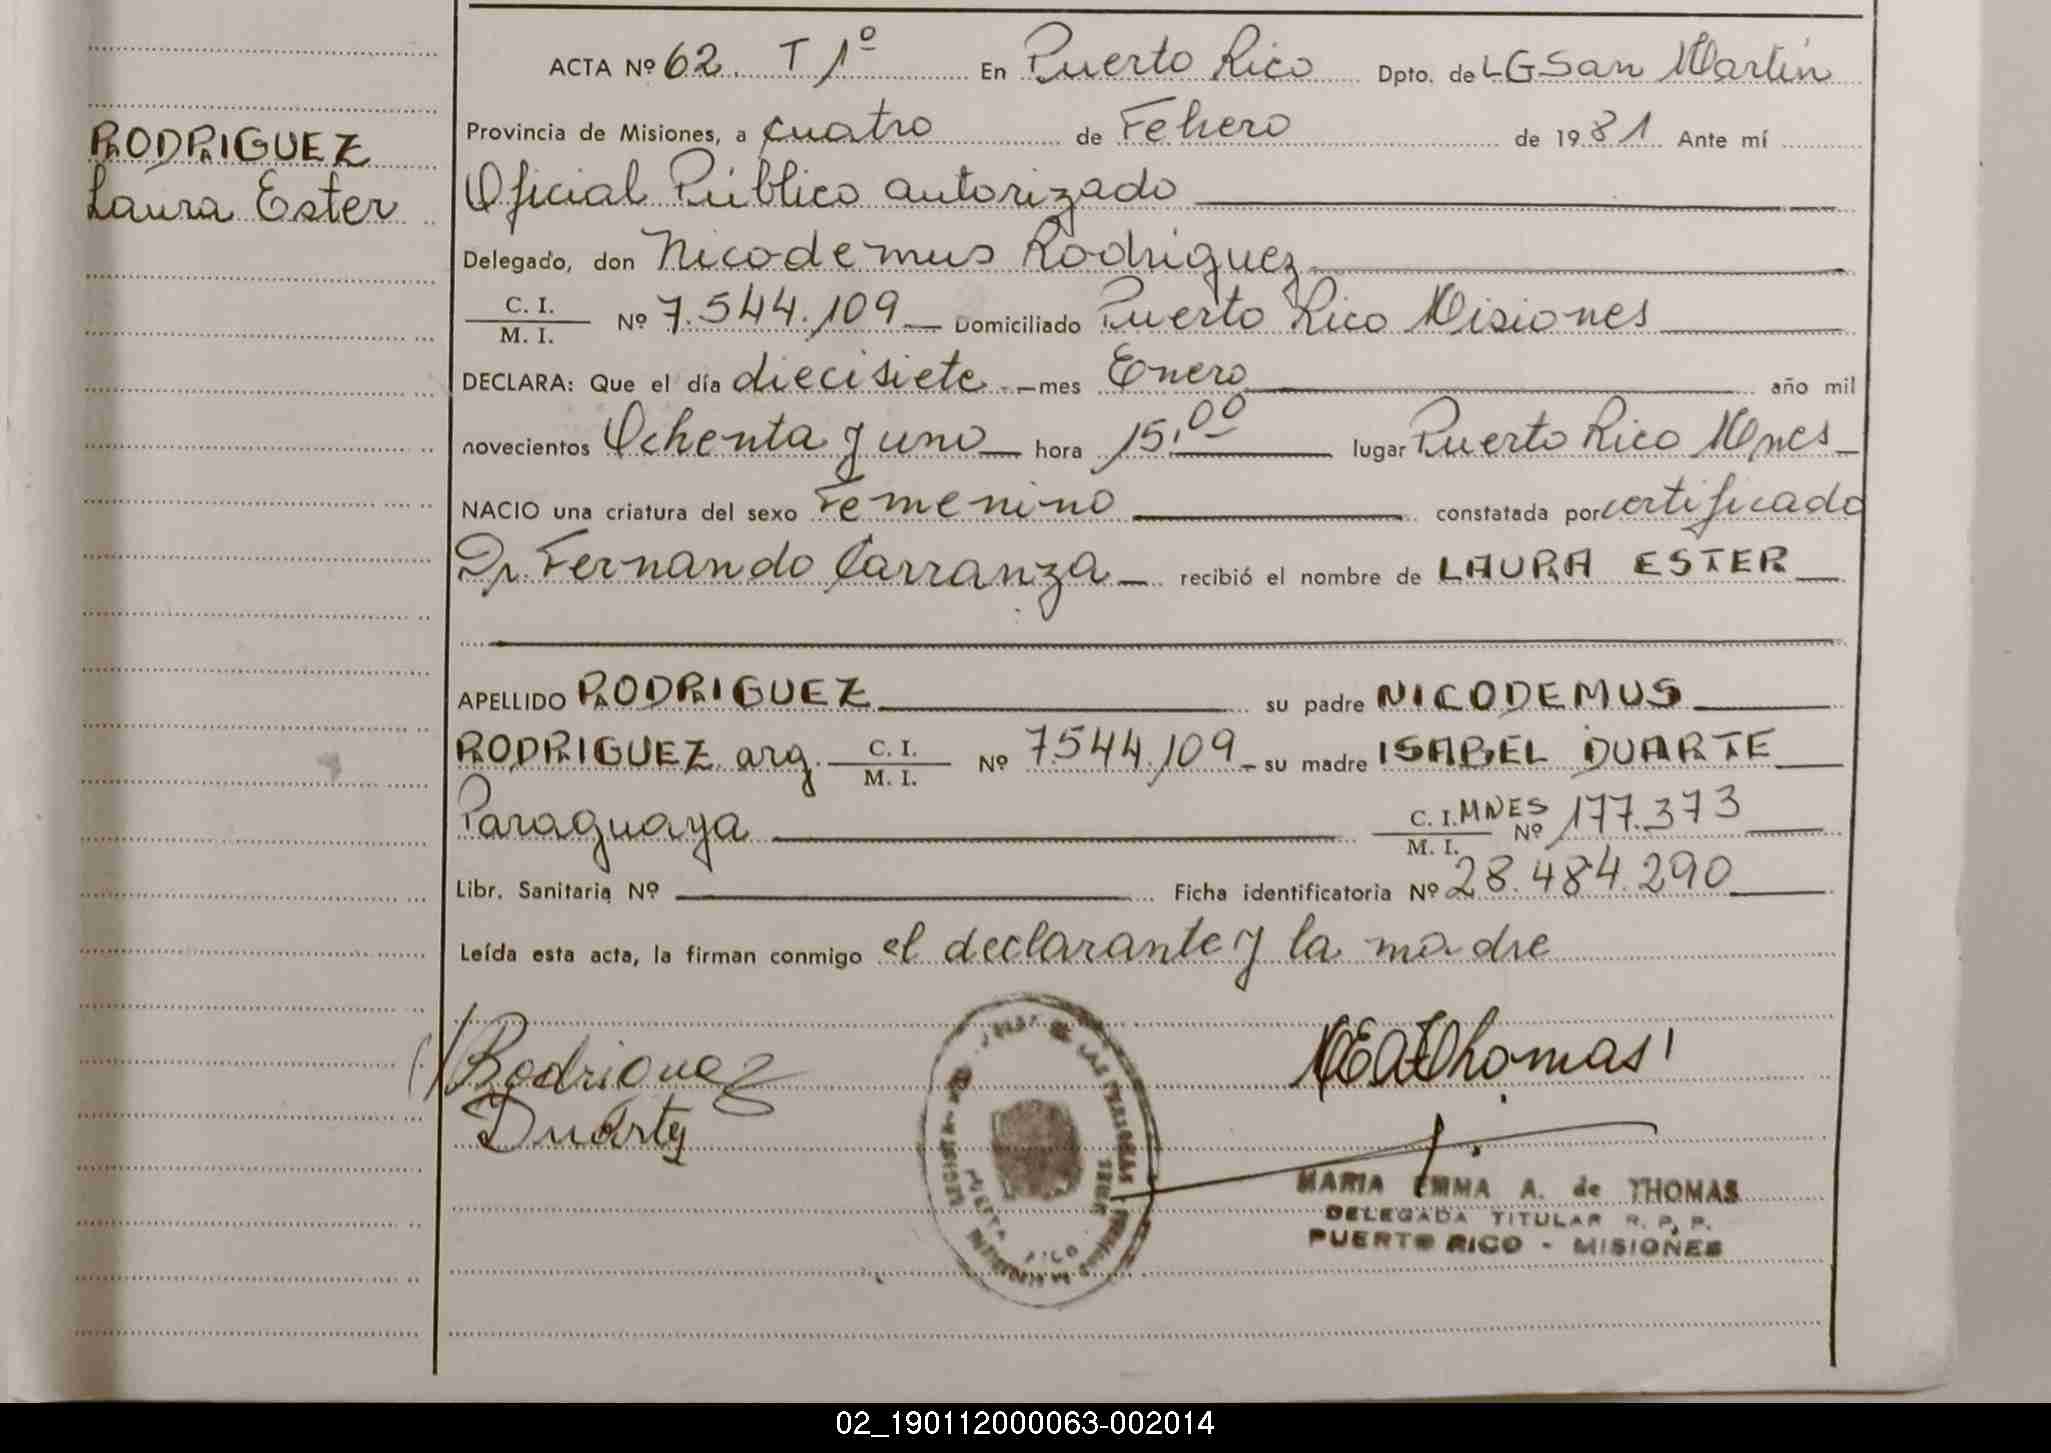 RODRIGUEZ
Laura Ester
ACTA Nº 62. T 1º En Puerto Rico Dpto. de LG San Martin
Provincia de Misiones, a cuatro de Febrero de 1981 Ante mí
Oficial Público autorizado
Delegado, don Nicodemus Rodriguez
C. I.
M. I. Nº 7.544.109 Domiciliado Puerto Rico Misiones
DECLARA: Que el día diecisiete mes Enero año mil
novecientos Ochenta y uno hora 15.00 lugar Puerto Rico Mnes
NACIO una criatura del sexo Femenino constatada por certificado
Dr. Fernando Carranza recibió el nombre de LAURA ESTER
APELLIDO RODRIGUEZ su padre NICODEMUS
RODRIGUEZ arg. C. I.
M. I. Nº 7544.109 su madre ISABEL DUARTE
Paraguaya C. I. MNES
M. I. Nº 177.373
Libr. Sanitaria Nº Ficha identificatoria Nº 28.484.290
Leída esta acta, la firman conmigo el declarante y la madre
Rodriguez
Duarte
MEAThomas
MARIA EMMA A. de THOMAS
DELEGADA TITULAR R. P. P.
PUERTO RICO - MISIONES
02_190112000063-002014